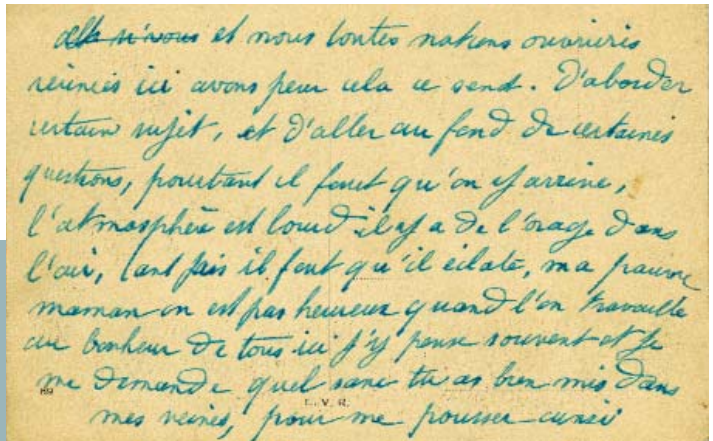 et nous toutes nations ouvrières
réunies ici avons peur cela ce send. D'aborder
certain sujet, et d'aller au fond de certaines
questions, pourtant il faut qu'on y arrive,
l'atmosphère est lourd il y a de l'orage dans
l'air, tant pis il faut qu'il éclate, ma pauvre
maman on est pas heureux quand l'on travaille
au bonheur de tous ici j'y pense souvent et je
me demande quel sanc tu as bien mis dans
mes veines, pour me pousser ainsi
89
L. V. R.